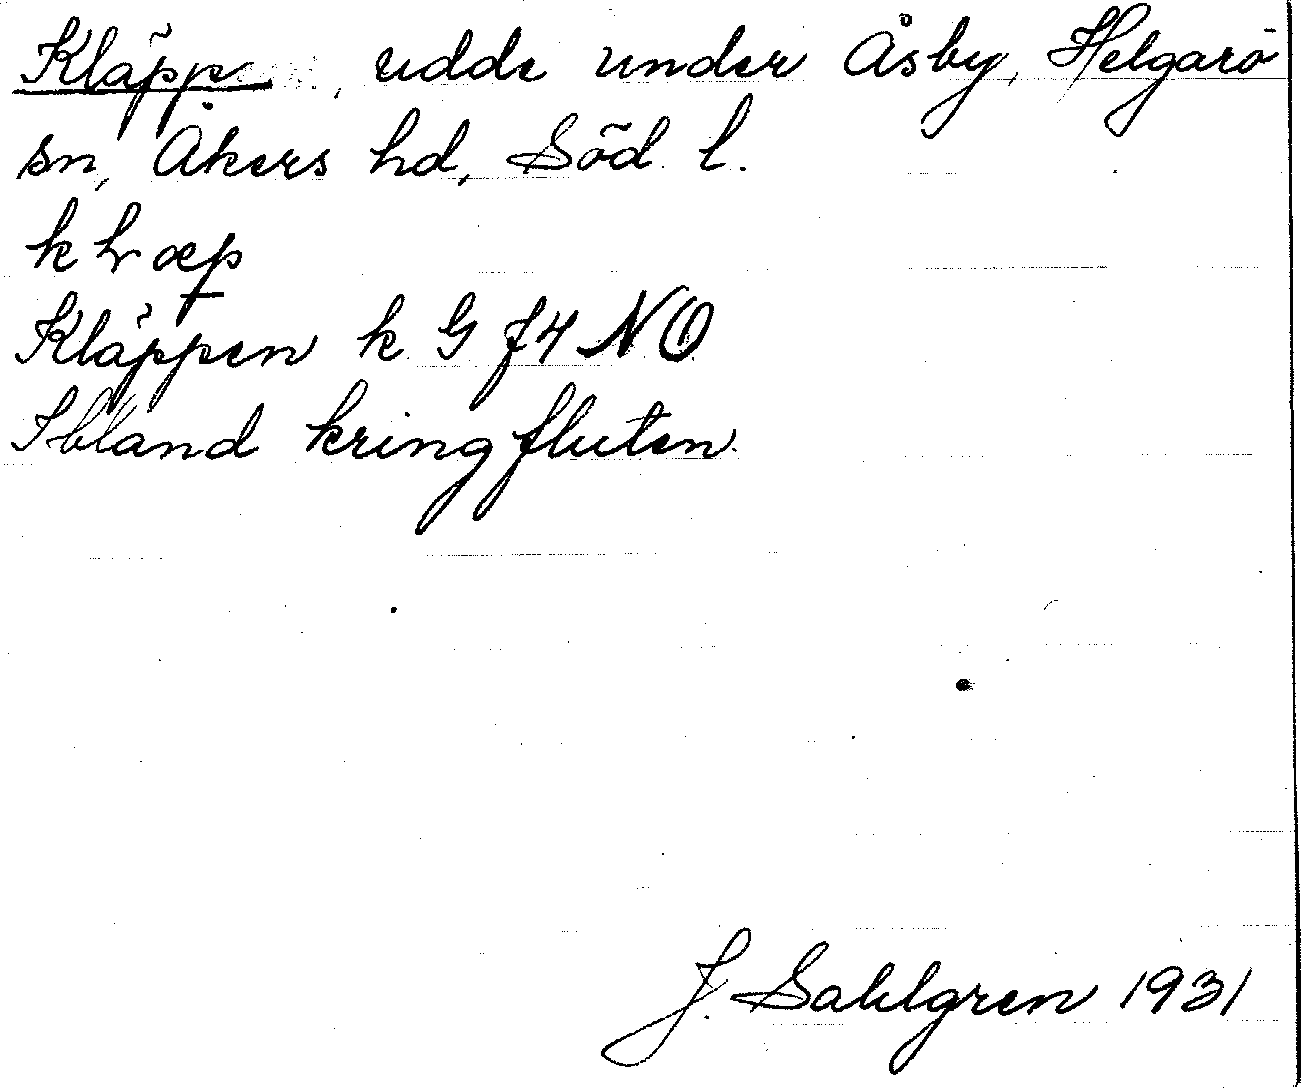 Kläpp, udde under Åsby, Helgarö
sn, Åkers hd, Söd. l.
Kläppen k G f4 NO
Ibland kringfluten.
J. Sahlgren 1931